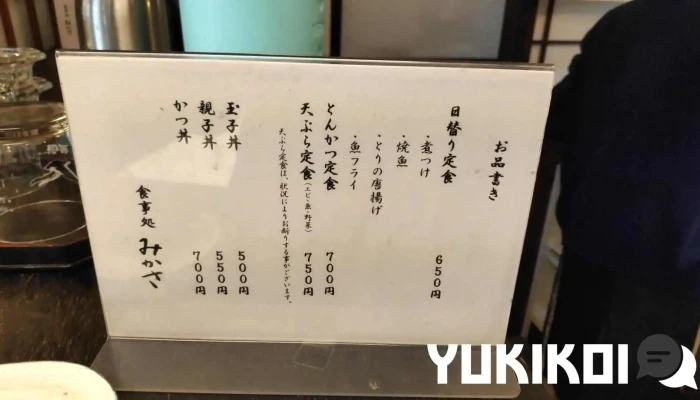 お品書き
日替り定食 650円
・煮つけ
・焼魚
・とりの唐揚げ
・魚フライ
とんかつ定食 700円
天ぷら定食(エビ・魚・野菜) 750円
天ぷら定食は、状況によりお断りする事がございます。
玉子丼 500円
親子丼 550円
かつ丼 700円
食事処 みかさ
YUKIKOI